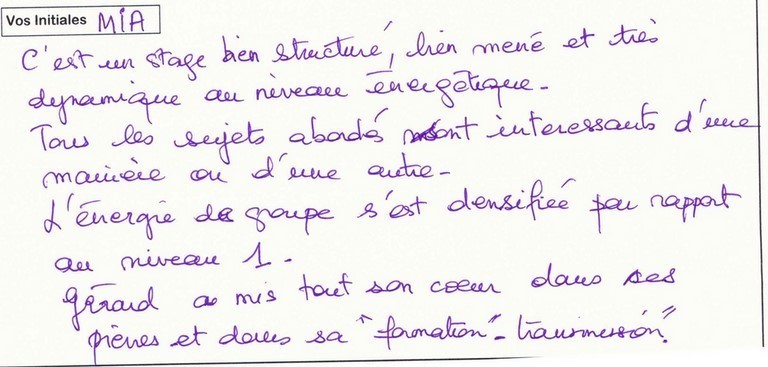 Vos Initiales MIA
C'est un stage bien structuré, bien mené et très
dynamique au niveau énergétique.
Tous les sujets abordés sont interessants d'une
manière ou d'une autre.
L'énergie de groupe s'est densifiée par rapport
au niveau 1.
Gérard a mis tout son coeur dans ses
pierres et dans sa "formation" - transmission".